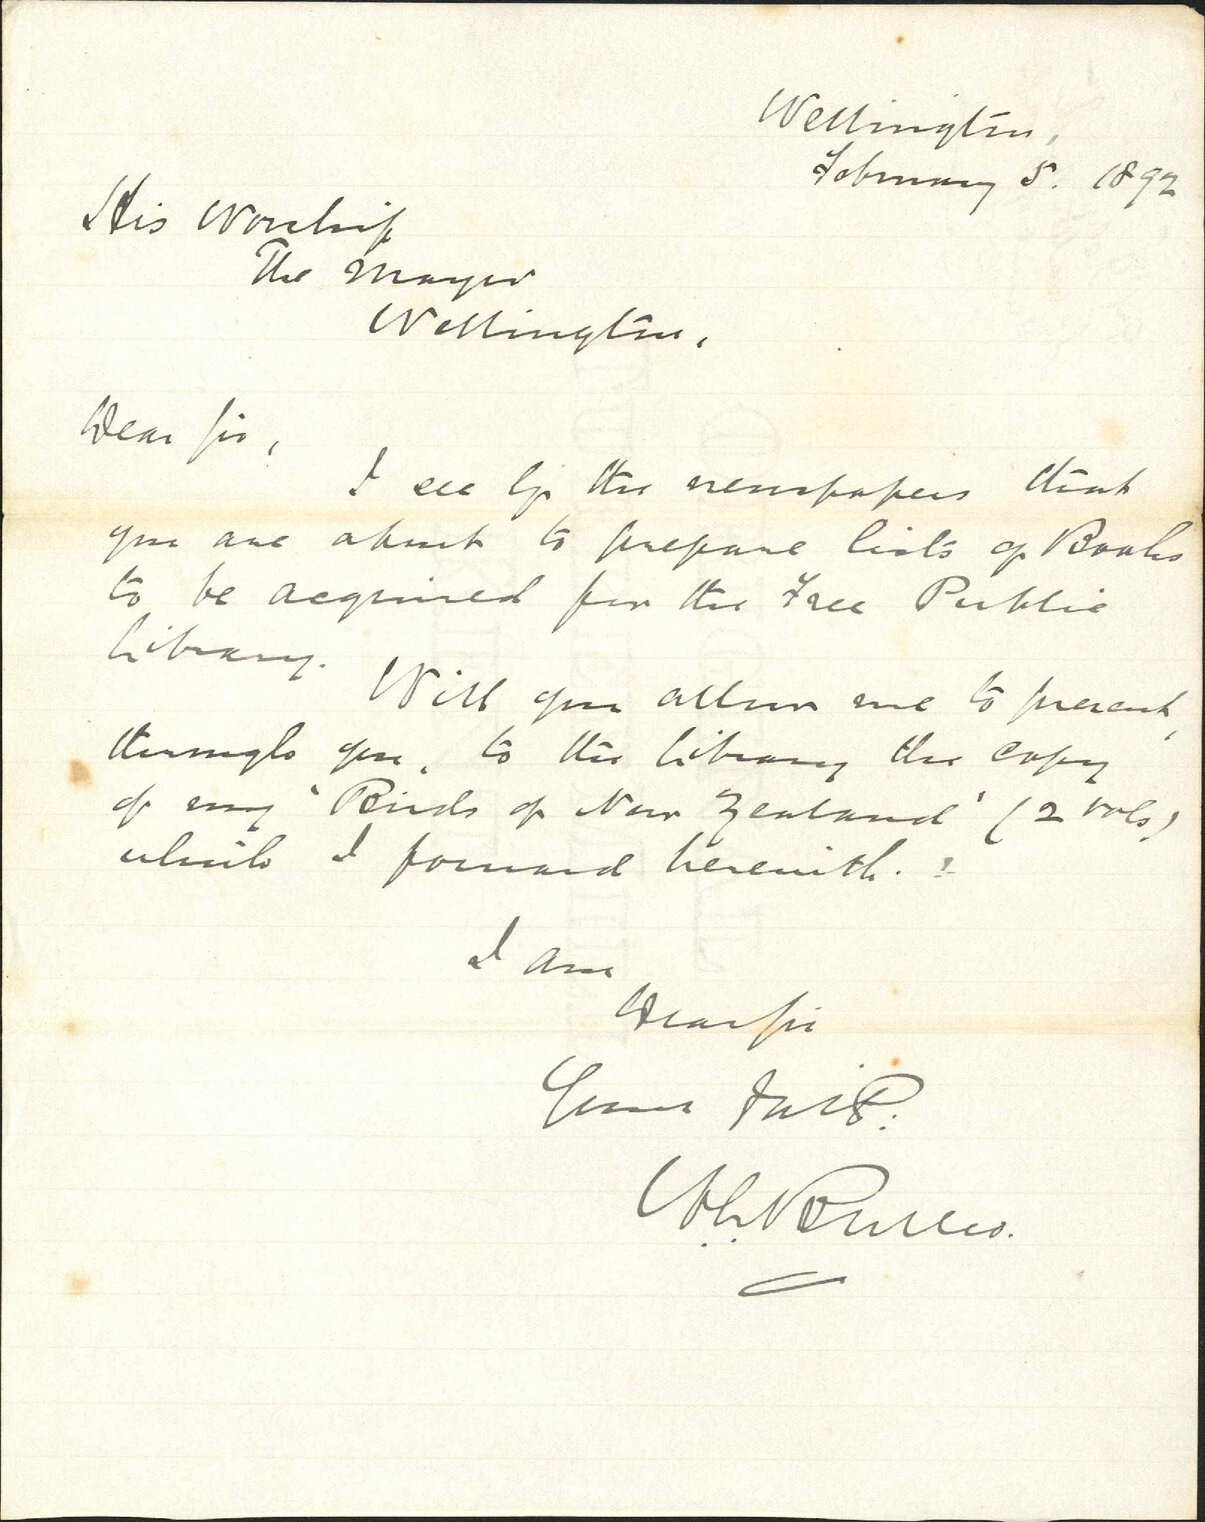 Wellington,
February 5. 1892
His Worship
The Mayor
Wellington,
Dear Sir,
I see by the newspapers that
you are about to prepare lists of Books
to be acquired for the Free Public
Library.
Will you allow me to present,
through you, to the Library the copy
of my 'Birds of New Zealand' (2 vols)
which I forward herewith.
I am
Dear Sir
Yours
W.L. Buller.